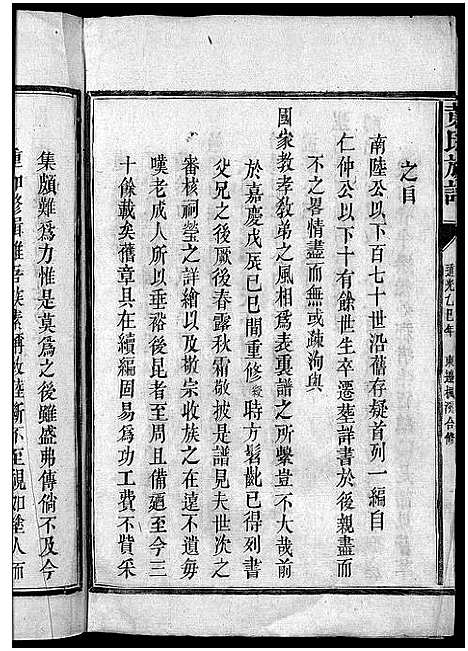 黃氏族譜
道光乙巳年　東邊楓溪合修
之目
南陸公以下百七十世沿舊存疑首列一編自
仁仲公以下十有餘世生卒遷塟詳書於後親盡而
不之畧情盡而無或疎洵與
國家教孝教弟之風相爲表裏譜之所繫豈不大哉前
於嘉慶戊辰己巳間重修 時方髫齔已得列書
父兄之後厥後春露秋霜敬披是譜見夫世次之
審核祠塋之詳繪以及敬宗收族之在遠不遺每
嘆老成人所以垂裕後昆者至周且備廼至今三
十餘載矣舊章具在續編固易爲功工費不貲采
集頗難爲力惟是莫爲之後雖盛弗傳倘不及今
重加修輯雖吾族素稱敦睦斷不至視如塗人而